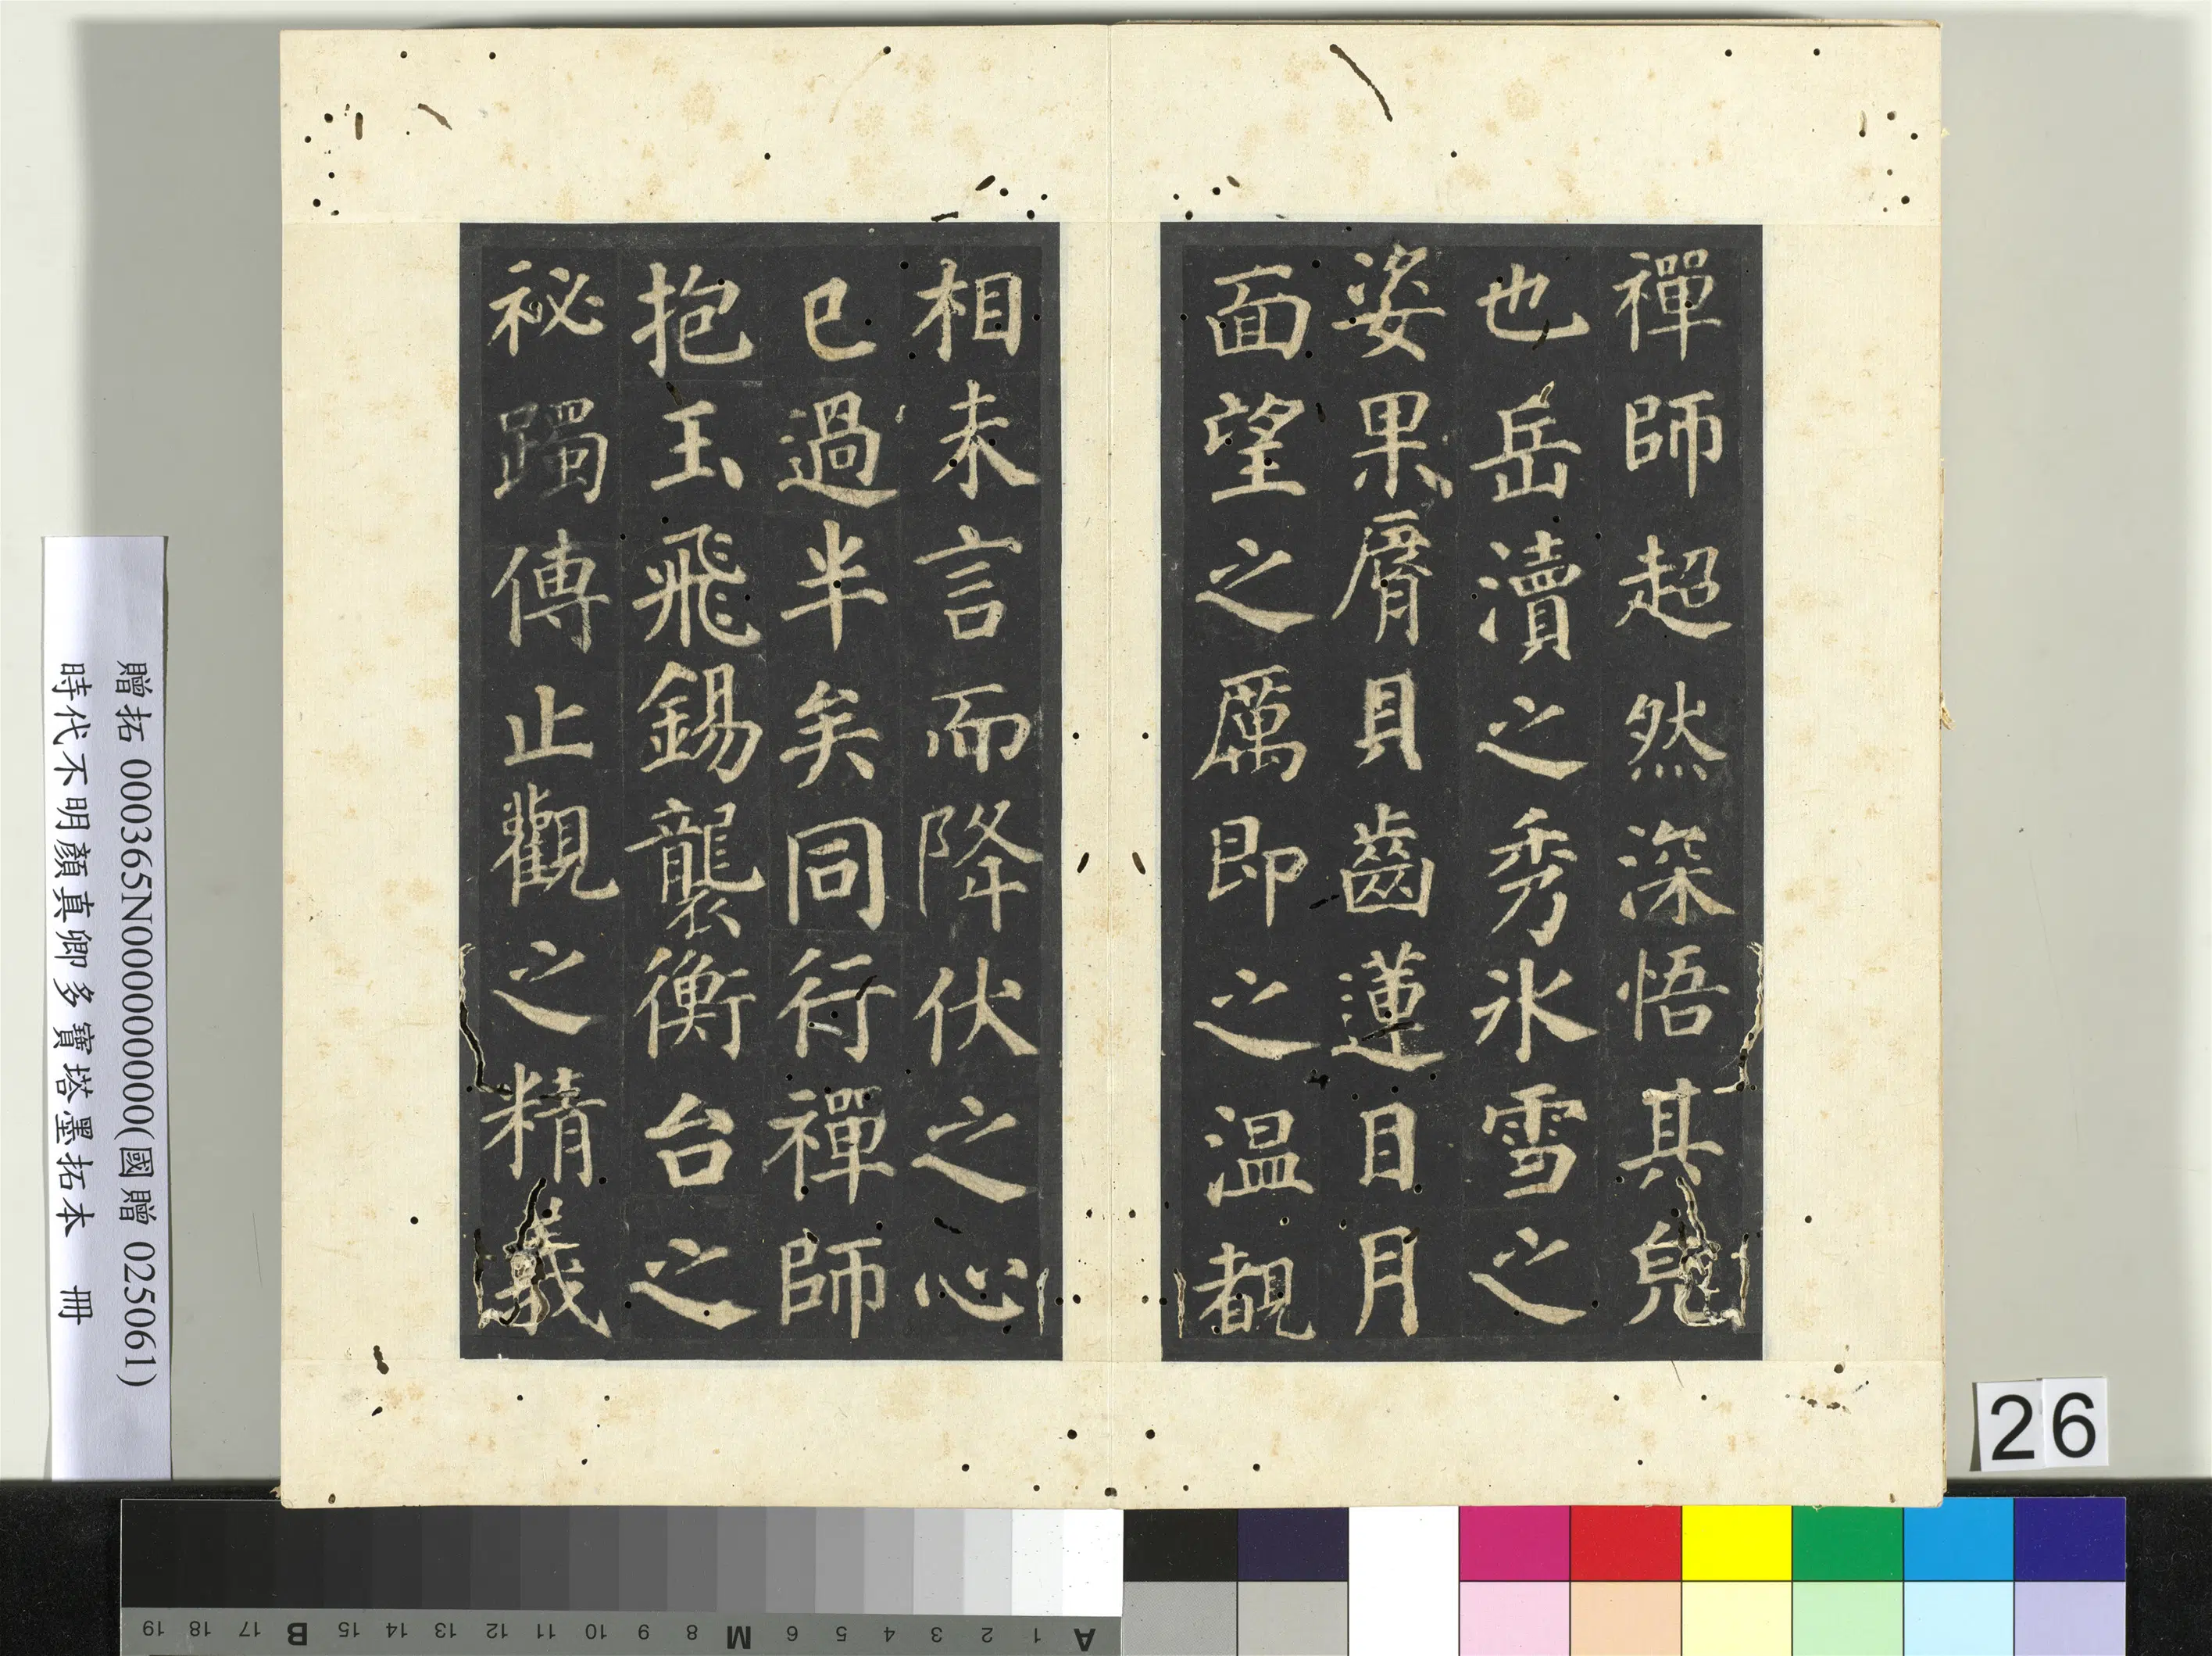 禪師超然深悟其皃
也岳瀆之秀冰雪之
姿果脣貝齒蓮目月
面望之厲即之温覩
相未言而降伏之心
已過半矣同行禪師
抱玉飛錫襲衡台之
祕躅傳止觀之精義
贈拓 000365N000000000(國贈 025061)
時代不明顏真卿多寶塔墨拓本 冊
26
A 1 2 3 4 5 6 M 8 9 10 11 12 13 14 15 B 17 18 19